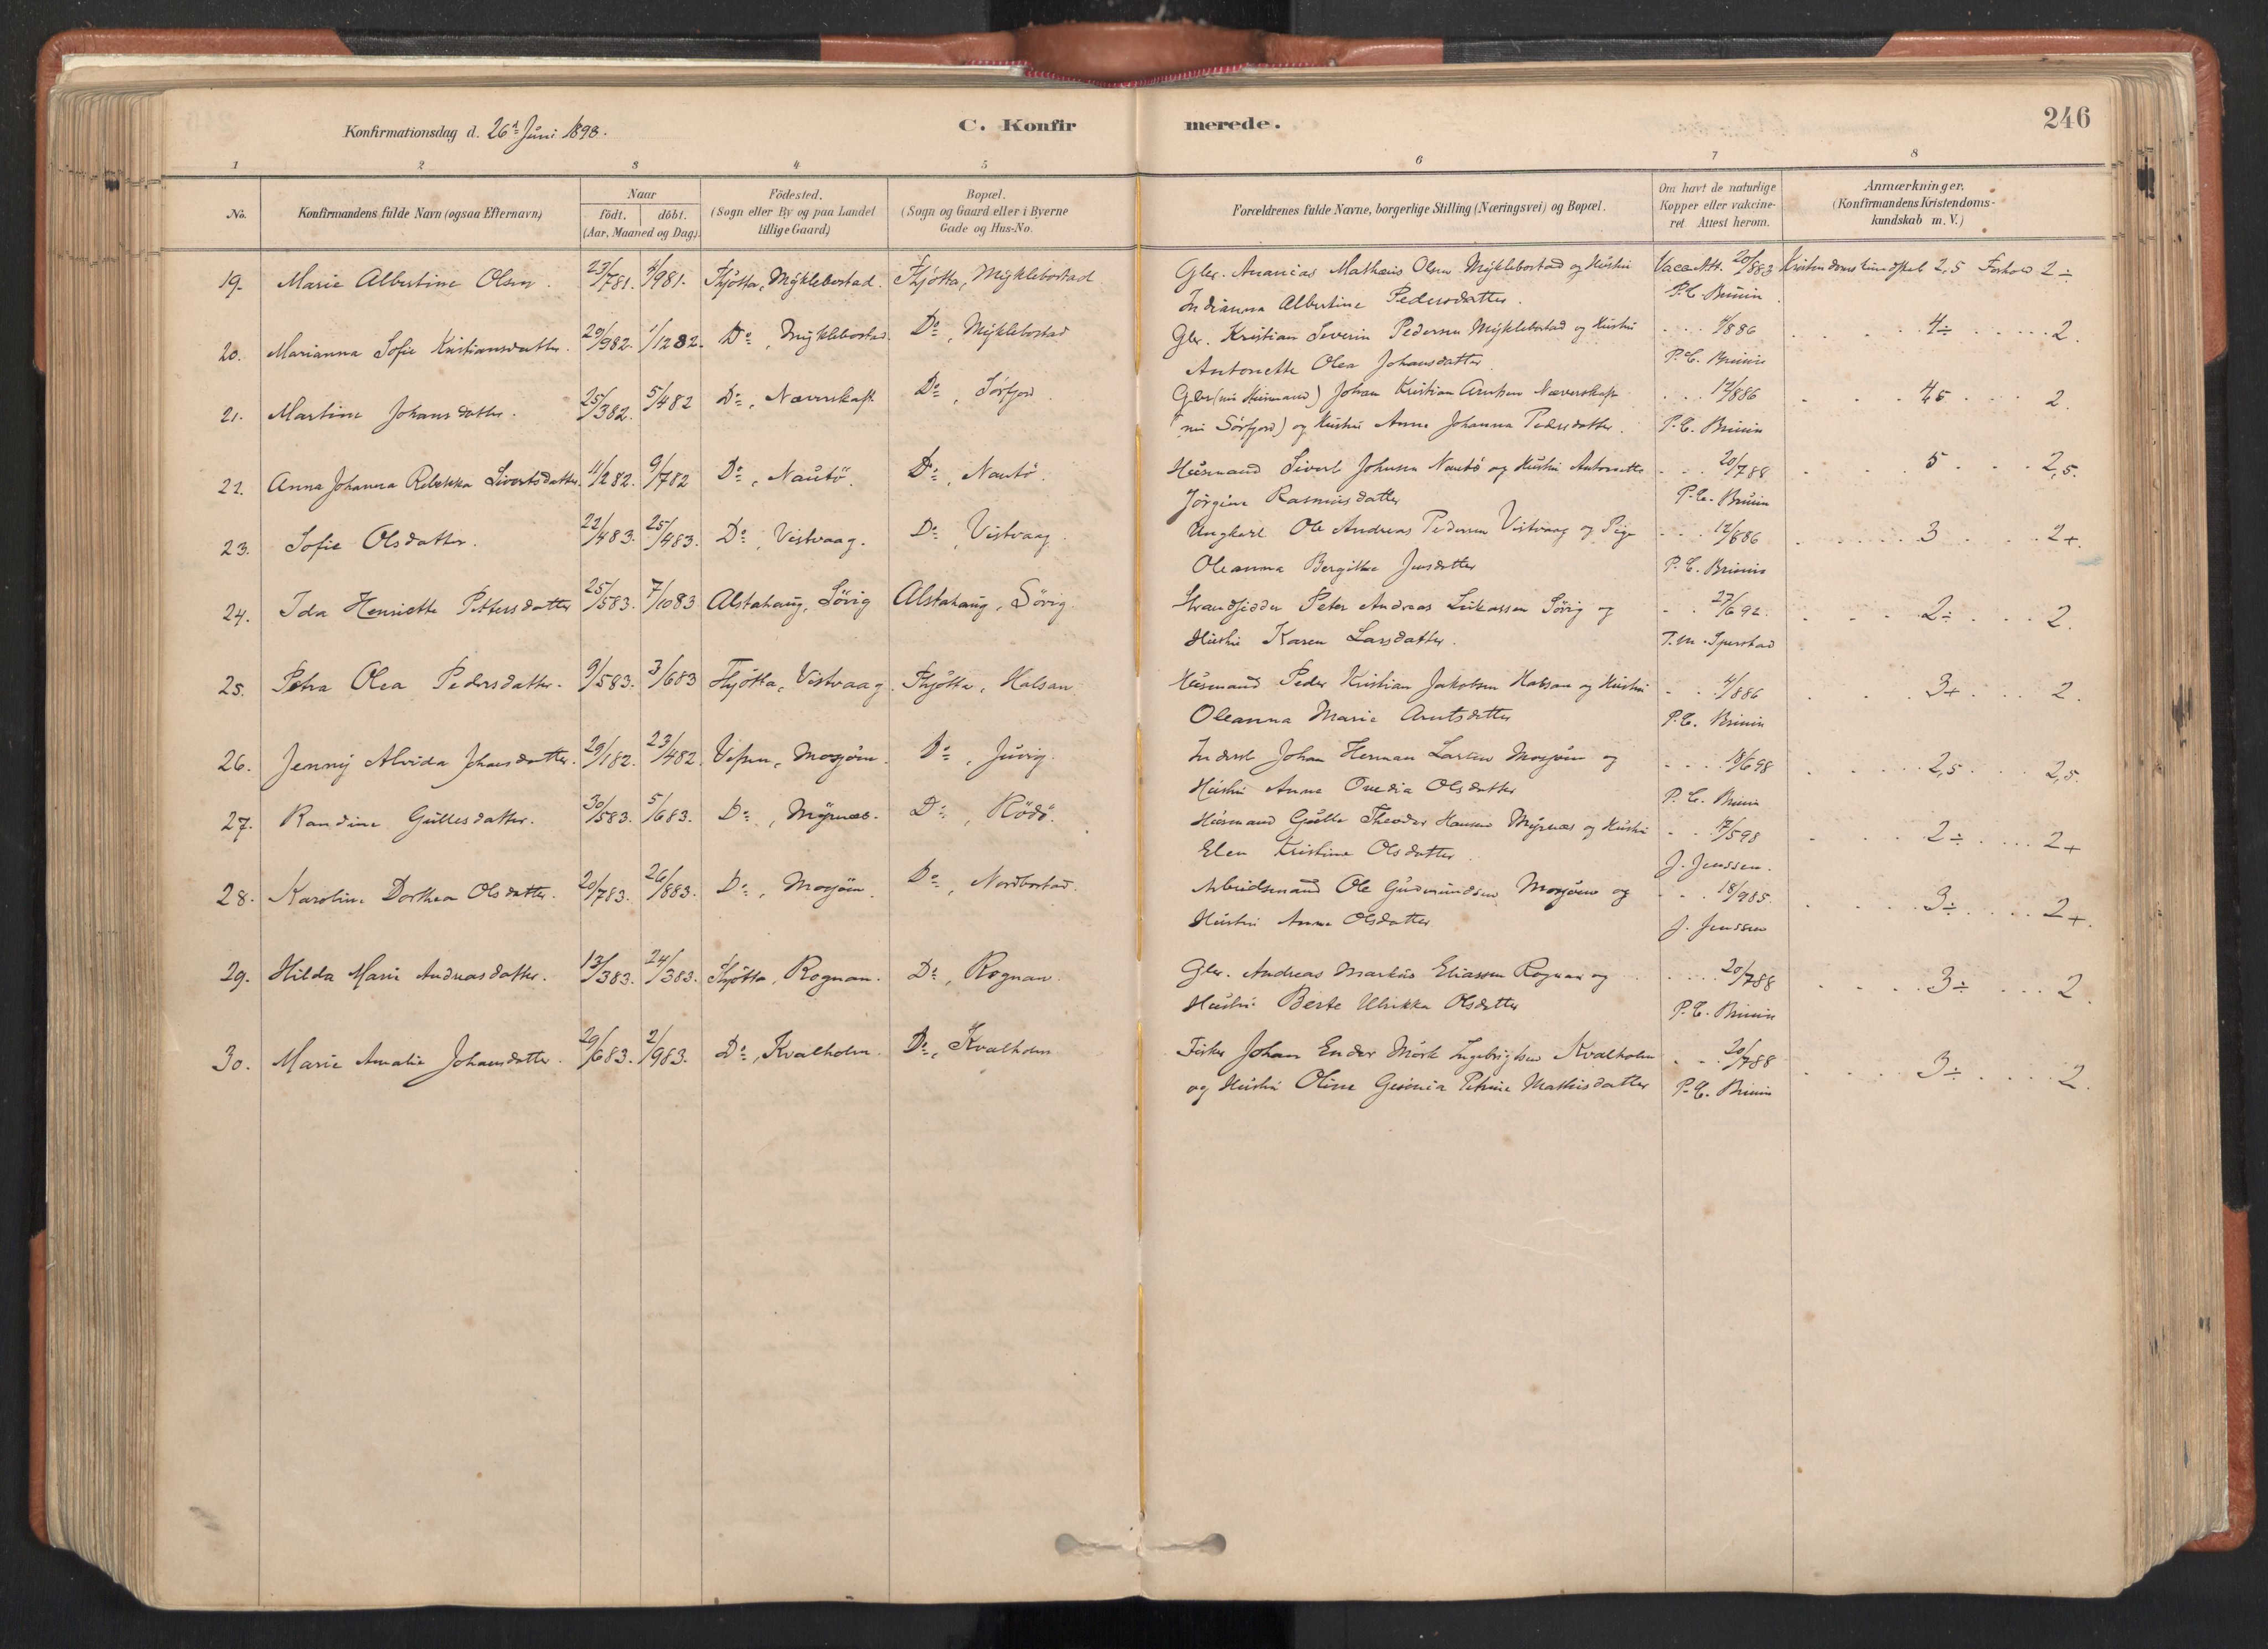 246
Konfirmationsdag d. 26d Juni 1898.
C. Konfirmerede.
1 2 3 4 5 6 7 8
No. Konfirmandens fulde Navn (ogsaa Efternavn) Naar födt. döbt. (Aar, Maaned og Dag). Födested. (Sogn eller By og paa Landet tillige Gaard) Bopæl. (Sogn og Gaard eller i Byerne Gade og Hus-No. Forældrenes fulde Navne, borgerlige Stilling (Næringsvei) og Bopæl. Om havt de naturlige Kopper eller vakcineret Attest herom. Anmærkninger. (Konfirmandens Kristendomskundskab m. V.)
19. Marie Albertine Olsen. 23/781. 4/981. Thjøtta, Mÿklebostad. Thjøtta, Mÿklebostad Gbr. Ananias Mathæus Olsen Mÿklebostad og Hustru Vacc. Att. 20/883 Kristendomskundskab 2,5 Forhold 2÷
Indianna Albertine Pedersdatter. P.C. Bruun
20. Marianna Sofie Kristiansdatter. 29/982. 1/1282. Do, Mÿklebostad. Do, Mÿklebostad Gbr. Kristian Severin Pedersen Mÿklebostad og Hustru 4/886 4÷ 2.
Antonette Olea Johansdatter P.C. Bruun
21. Martine Johansdatter. 25/382. 5/482 Do, Næverskaft Do, Sørfjord Gbr (nu Husmand) Johan Kristian Arntsen Næverskaft 12/886 4,5 2.
(nu Sörfjord) og Hustru Anne Johanna Pedersdatter. P.C. Bruun
22. Anna Johanna Rebekka Sivertsdatter. 11/282. 9/782 Do, Nautö. Do, Nautö. Husmand Sivert Johnsen Nautö og Hustru Antonette 20/788 5 2,5.
Jörgine Rasmusdatter P.C. Bruun
23. Sofie Olsdatter. 22/483. 25/483. Do, Vistvaag. Do, Vistvaag. Ungkarl Ole Andreas Pedersen Vistvaag og Pige 12/886 3 2+.
Oleanna Bergitte Jensdatter P.C. Bruun
24. Ida Henriette Pettersdatter 25/583. 7/1083 Alstahaug, Sövig Alstahaug, Sövig Strandsidder Peter Andreas Lukassen Sövig og 27/692. 2÷ 2.
Hustru Karen Larsdatter.
25. Petra Olea Pedersdatter. 9/583. 3/683 Thjøtta, Vistvaag. Thjøtta, Halsan Husmand Peder Kristian Jakobsen Halsan og Hustru 4/886 3+ 2.
Oleanna Marie Arntsdatter P.C. Bruun
26. Jenny Alvida Johansdatter. 29/182. 23/482. Vefsen, Mosjøen. Do, Juvig. Inderst Johan Herman Larsen Mosjøen og 18/698 2,5 2,5.
Hustru Anne Ovedia Olsdatter P.C. Bruun
27. Randine Gullesdatter. 30/583. 5/683. Do, Mÿrnæs. Do, Rödö. Husmand Gulle Theodor Hansen Mÿrnæs og Hustru 17/598 2÷ 2+
Elen Kristine Olsdatter. J. Jenssen.
28. Karoline Dorthea Olsdatter. 20/783. 26/883. Do, Mosjøen. Do, Nordbostad. Arbeidsmand Ole Gudmundsen Mosjøen og 18/985. 3÷ 2+.
Hustru Anne Olsdatter J. Jenssen
29. Hilda Marie Andreasdatter. 13/383. 24/383. Thjøtta, Rognan. Do, Rognan. Gbr. Andreas Markus Eliassen Rognan og 20/788 3÷ 2.
Hustru Berte Ulrikka Olsdatter P.C. Bruun
30. Marie Amalie Johansdatter. 29/683. 2/983. Do, Kvalholm. Do, Kvalholm Fisker Johan Ender Mörk Ingebrigtsen Kvalholm 20/788 3÷ 2.
og Hustru Oline Petrine Mathisdatter P.C. Bruun